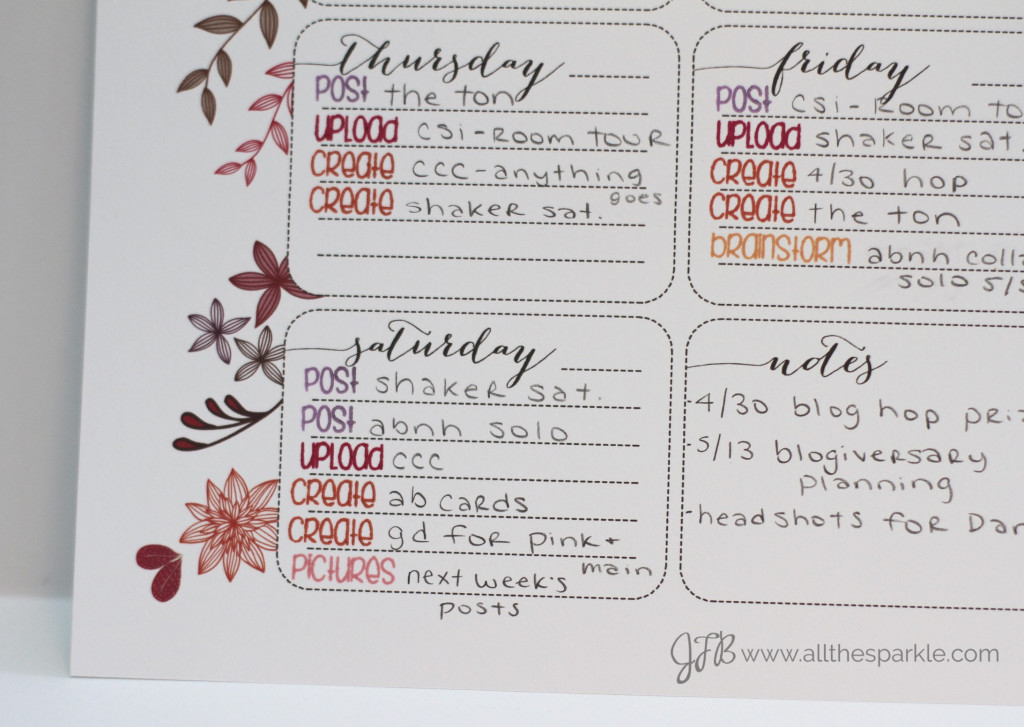 thursday
POST the ton
UPLOAD CSI-ROOM TOUR
CREATE CCC-anything
goes
CREATE shaker sat.
friday
POST CSI-ROOM
UPLOAD shaker sat.
CREATE 4/30 hop
CREATE the ton
BRAINSTORM abnh
solo
saturday
POST shaker sat.
POST abnh solo
UPLOAD CCC
CREATE ab cards
CREATE gd for pink+
main
PICTURES next week's
posts
notes
-4/30 blog hop
-5/13 blogiversary
planning
-headshots for
JFB www.allthesparkle.com